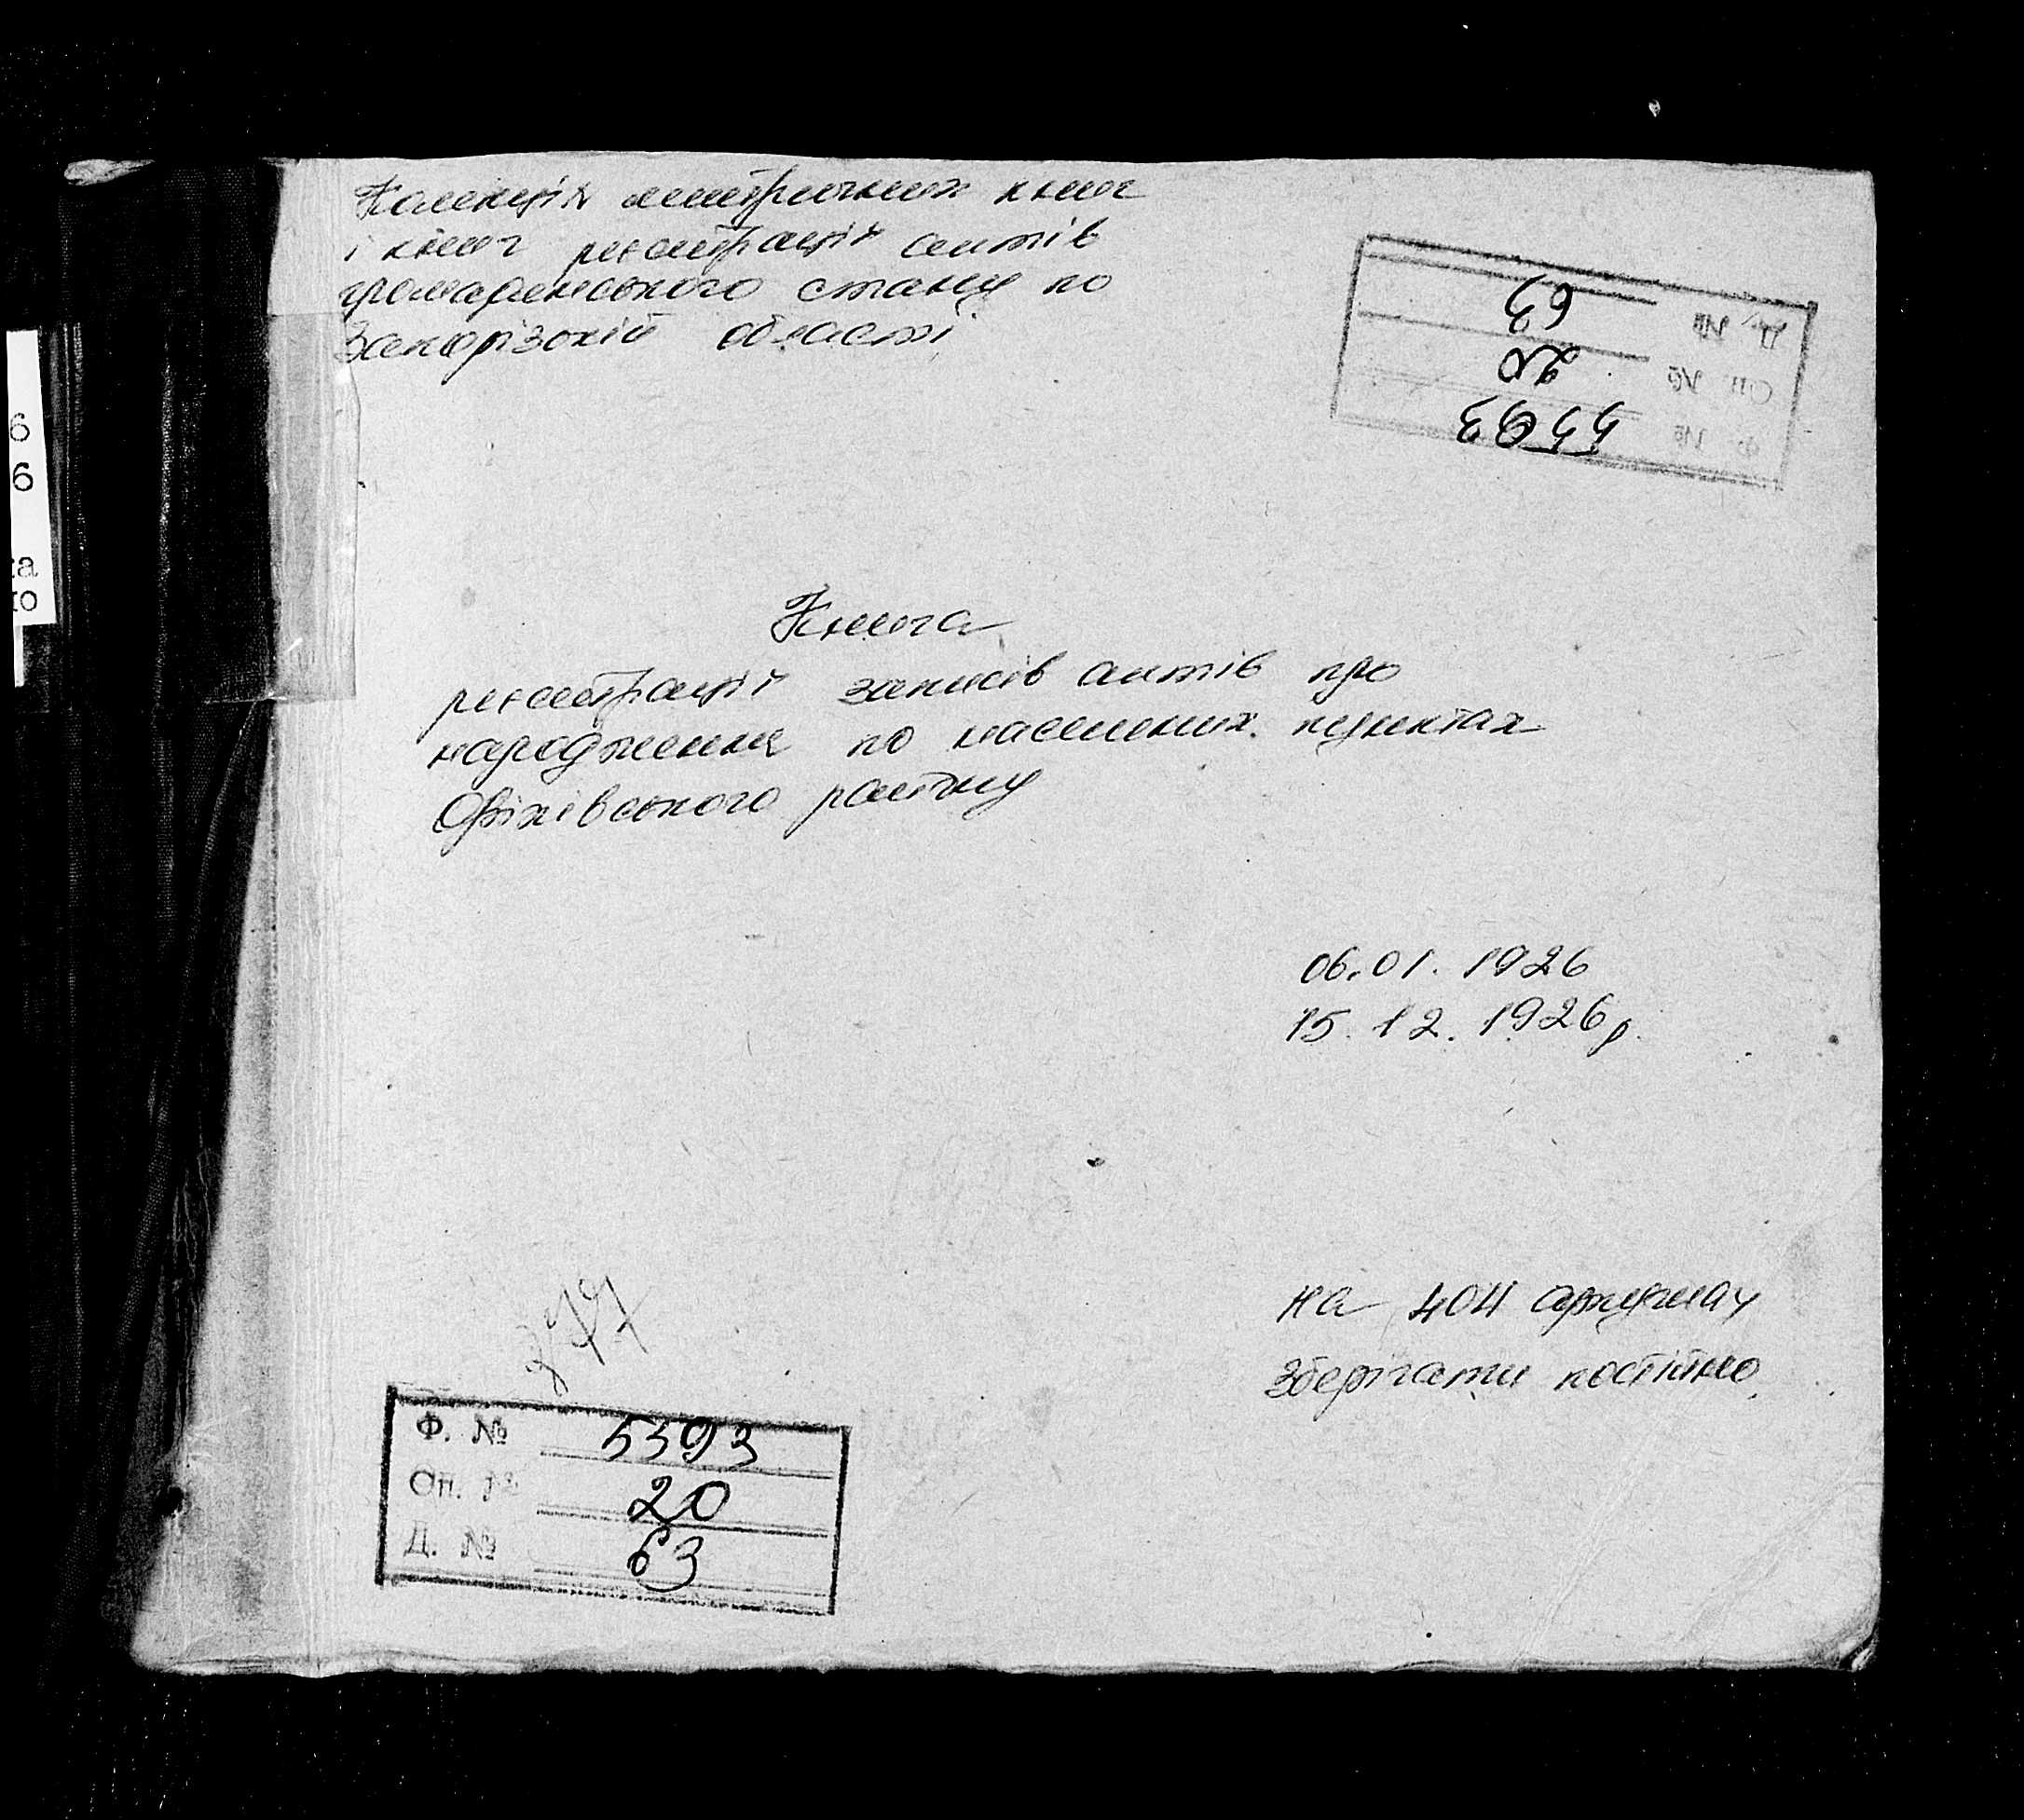 Колекція метричних книг
і книг реєстрації актів
громадянського стану по
Запорізькій області
Д. № 63
Оп. № 20
Ф. № 5593
Книга
реєстрації записів актів про
народження по населених пунктах
Оріхівського району
06.01.1926
15.12.1926р.
на 404 аркушах
Зберігати постійно.
Ф. № 5593
Оп. № 20
Д. № 63
6
6
та
то